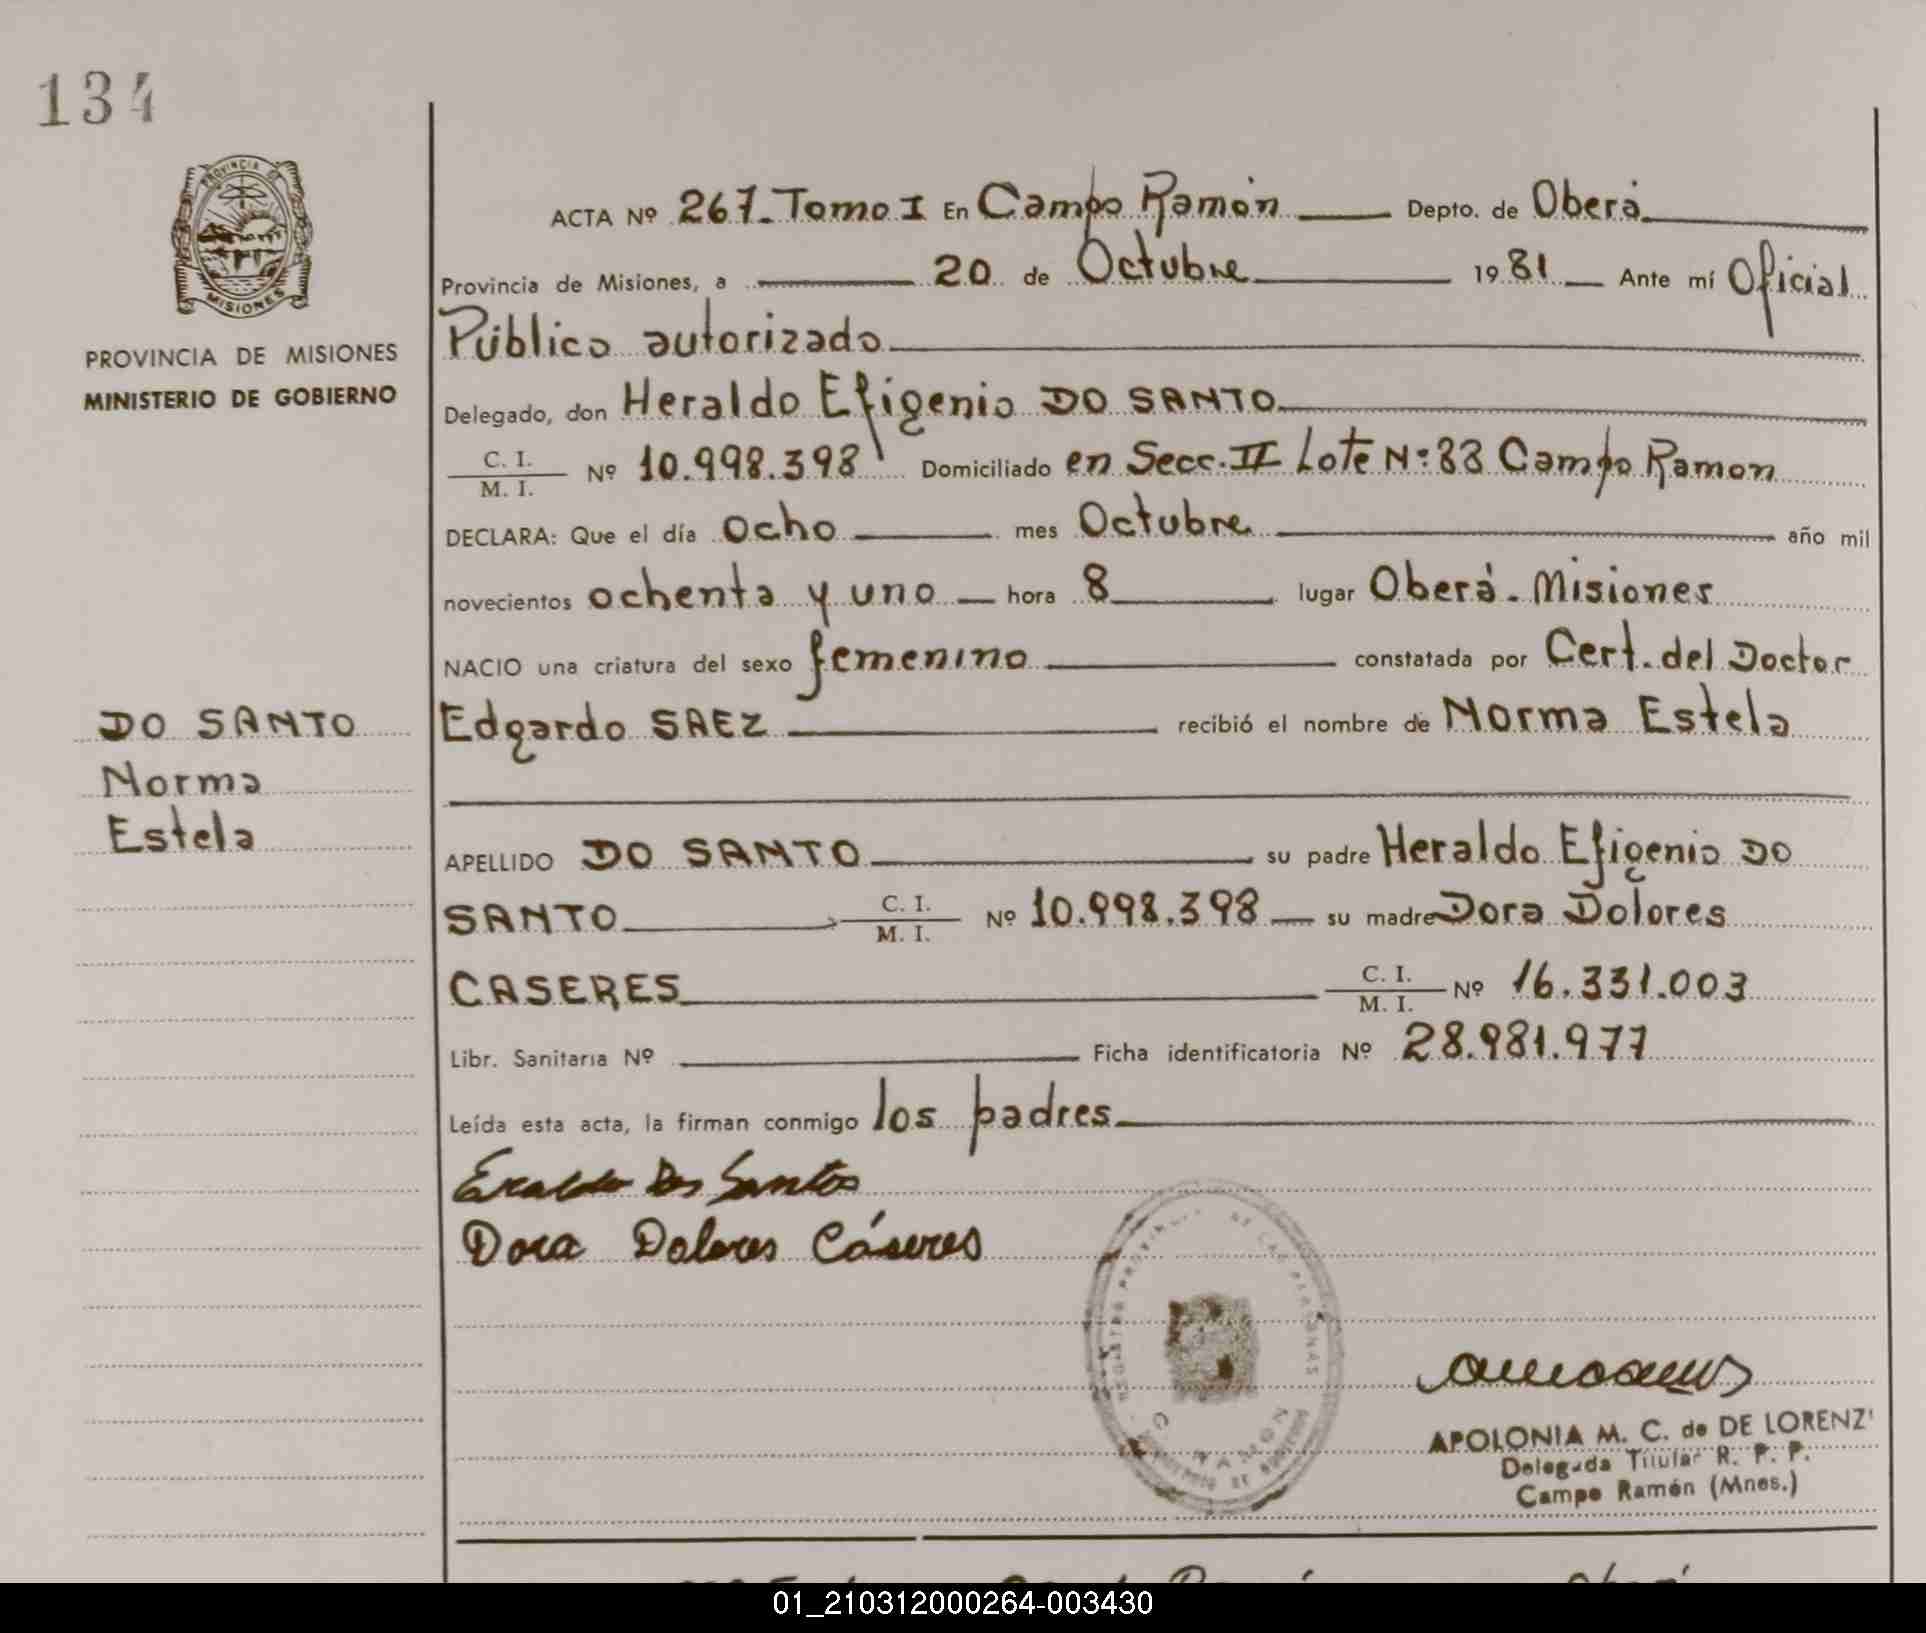 134
PROVINCIA DE
MISIONES
PROVINCIA DE MISIONES
MINISTERIO DE GOBIERNO
DO SANTO
Norma
Estela
ACTA Nº 267. Tomo I En Campo Ramón Depto. de Oberá
Provincia de Misiones, a 20 de Octubre 1981 Ante mí Oficial
Público autorizado
Delegado, don Heraldo Efigenio DO SANTO
C. I.
M. I. Nº 10.998.398 Domiciliado en Secc. II Lote Nº: 83 Campo Ramon
DECLARA: Que el día Ocho mes Octubre año mil
novecientos ochenta y uno hora 8 lugar Oberá. Misiones
NACIO una criatura del sexo femenino constatada por Cert. del Doctor
Edgardo SAEZ recibió el nombre de Norma Estela
APELLIDO DO SANTO su padre Heraldo Efigenio DO
SANTO C. I. M. I. Nº 10.998.398 su madre Dora Dolores
CASERES C. I. M. I. Nº 16.331.003
Libr. Sanitaria Nº Ficha identificatoria Nº 28.981.977
Leída esta acta, la firman conmigo los padres
Eraldo Dos Santos
Dora Dolores Cáseres
REGISTRO PROVINCIAL DE LAS PERSONAS
C. RAMON
MINISTERIO DE GOBIERNO
APOLONIA M. C. de DE LORENZI
Delegada Titular R. P. P.
Campo Ramón (Mnes.)
01_210312000264-003430